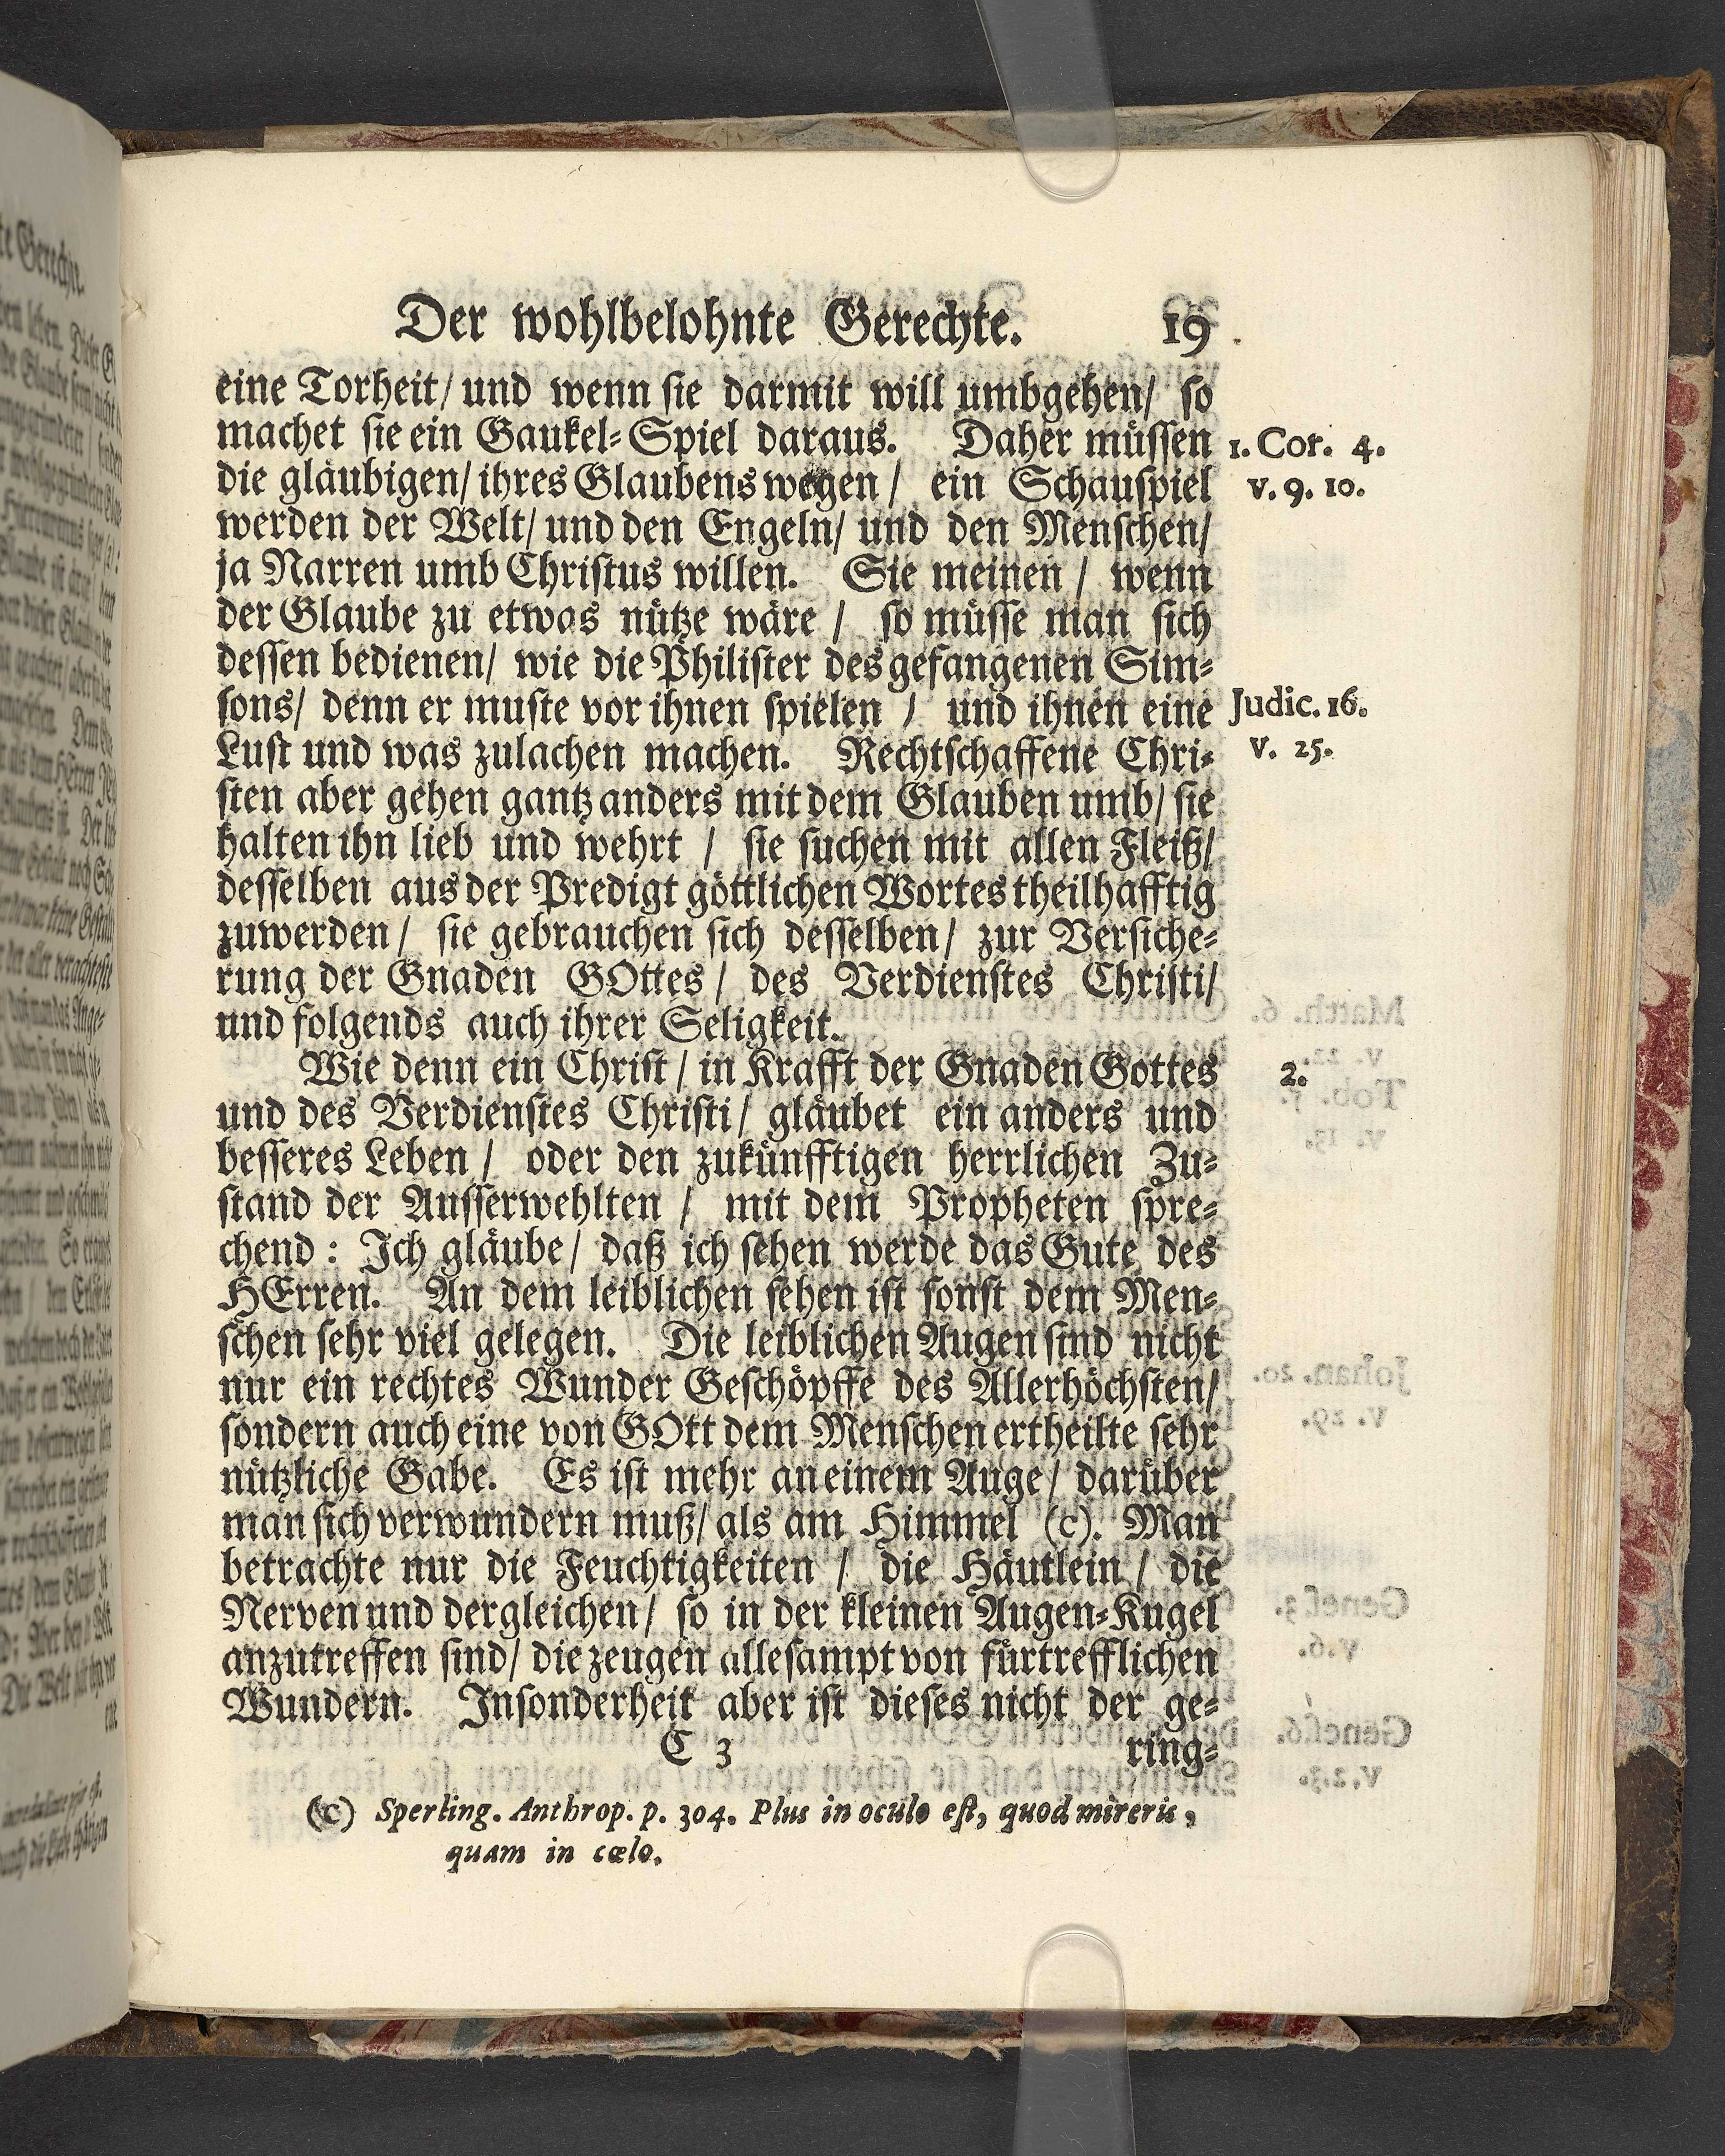 Der wohlbelohnte Gerechte. 19
eine Torheit/ und wenn sie darmit will umbgehen/ so
machet sie ein Gaukel-Spiel daraus. Daher müssen
1. Cor. 4.
die gläubigen/ ihres Glaubens wegen/ ein Schauspiel
v. 9. 10.
werden der Welt/ und den Engeln/ und den Menschen/
ja Narren umb Christus willen. Sie meinen/ wenn
der Glaube zu etwas nütze wäre/ so müsse man sich
dessen bedienen/ wie die Philister des gefangenen Sim-
sons/ denn er muste vor ihnen spielen/ und ihnen eine
Judic. 16.
Lust und was zulachen machen. Rechtschaffene Chri-
V. 25.
sten aber gehen gantz anders mit dem Glauben umb/ sie
halten ihn lieb und wehrt/ sie suchen mit allen Fleiß/
desselben aus der Predigt göttlichen Wortes theilhafftig
zuwerden/ sie gebrauchen sich desselben/ zur Versiche-
rung der Gnaden GOttes/ des Verdienstes Christi/
und folgends auch ihrer Seligkeit.
Wie denn ein Christ/ in Krafft der Gnaden Gottes
2.
und des Verdienstes Christi/ gläubet ein anders und
besseres Leben/ oder den zukünfftigen herrlichen Zu-
stand der Ausserwehlten/ mit dem Propheten spre-
chend: Ich gläube/ daß ich sehen werde das Gute des
HErren. An dem leiblichen sehen ist sonst dem Men-
schen sehr viel gelegen. Die leiblichen Augen sind nicht
nur ein rechtes Wunder Geschöpffe des Allerhöchsten/
sondern auch eine von GOtt dem Menschen ertheilte sehr
nützliche Gabe. Es ist mehr an einem Auge/ darüber
man sich verwundern muß/ als am Himmel (c). Man
betrachte nur die Feuchtigkeiten/ die Häutlein/ die
Nerven und dergleichen/ so in der kleinen Augen-Kugel
anzutreffen sind/ die zeugen allesampt von fürtrefflichen
Wundern. Insonderheit aber ist dieses nicht der ge-
C 3 ring-
(c) Sperling. Anthrop. p. 304. Plus in oculo est, quod mireris,
quam in cœlo.